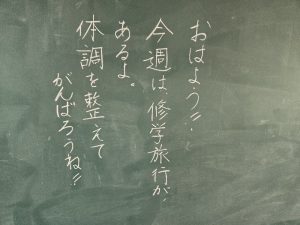 おはよう!!
今週は、修学旅行が
あるよ。
体調を整えて
がんばろうね!!